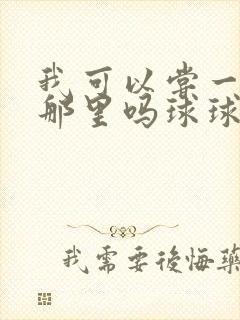 我可以常一
那里吗球球
我需要後悔藥